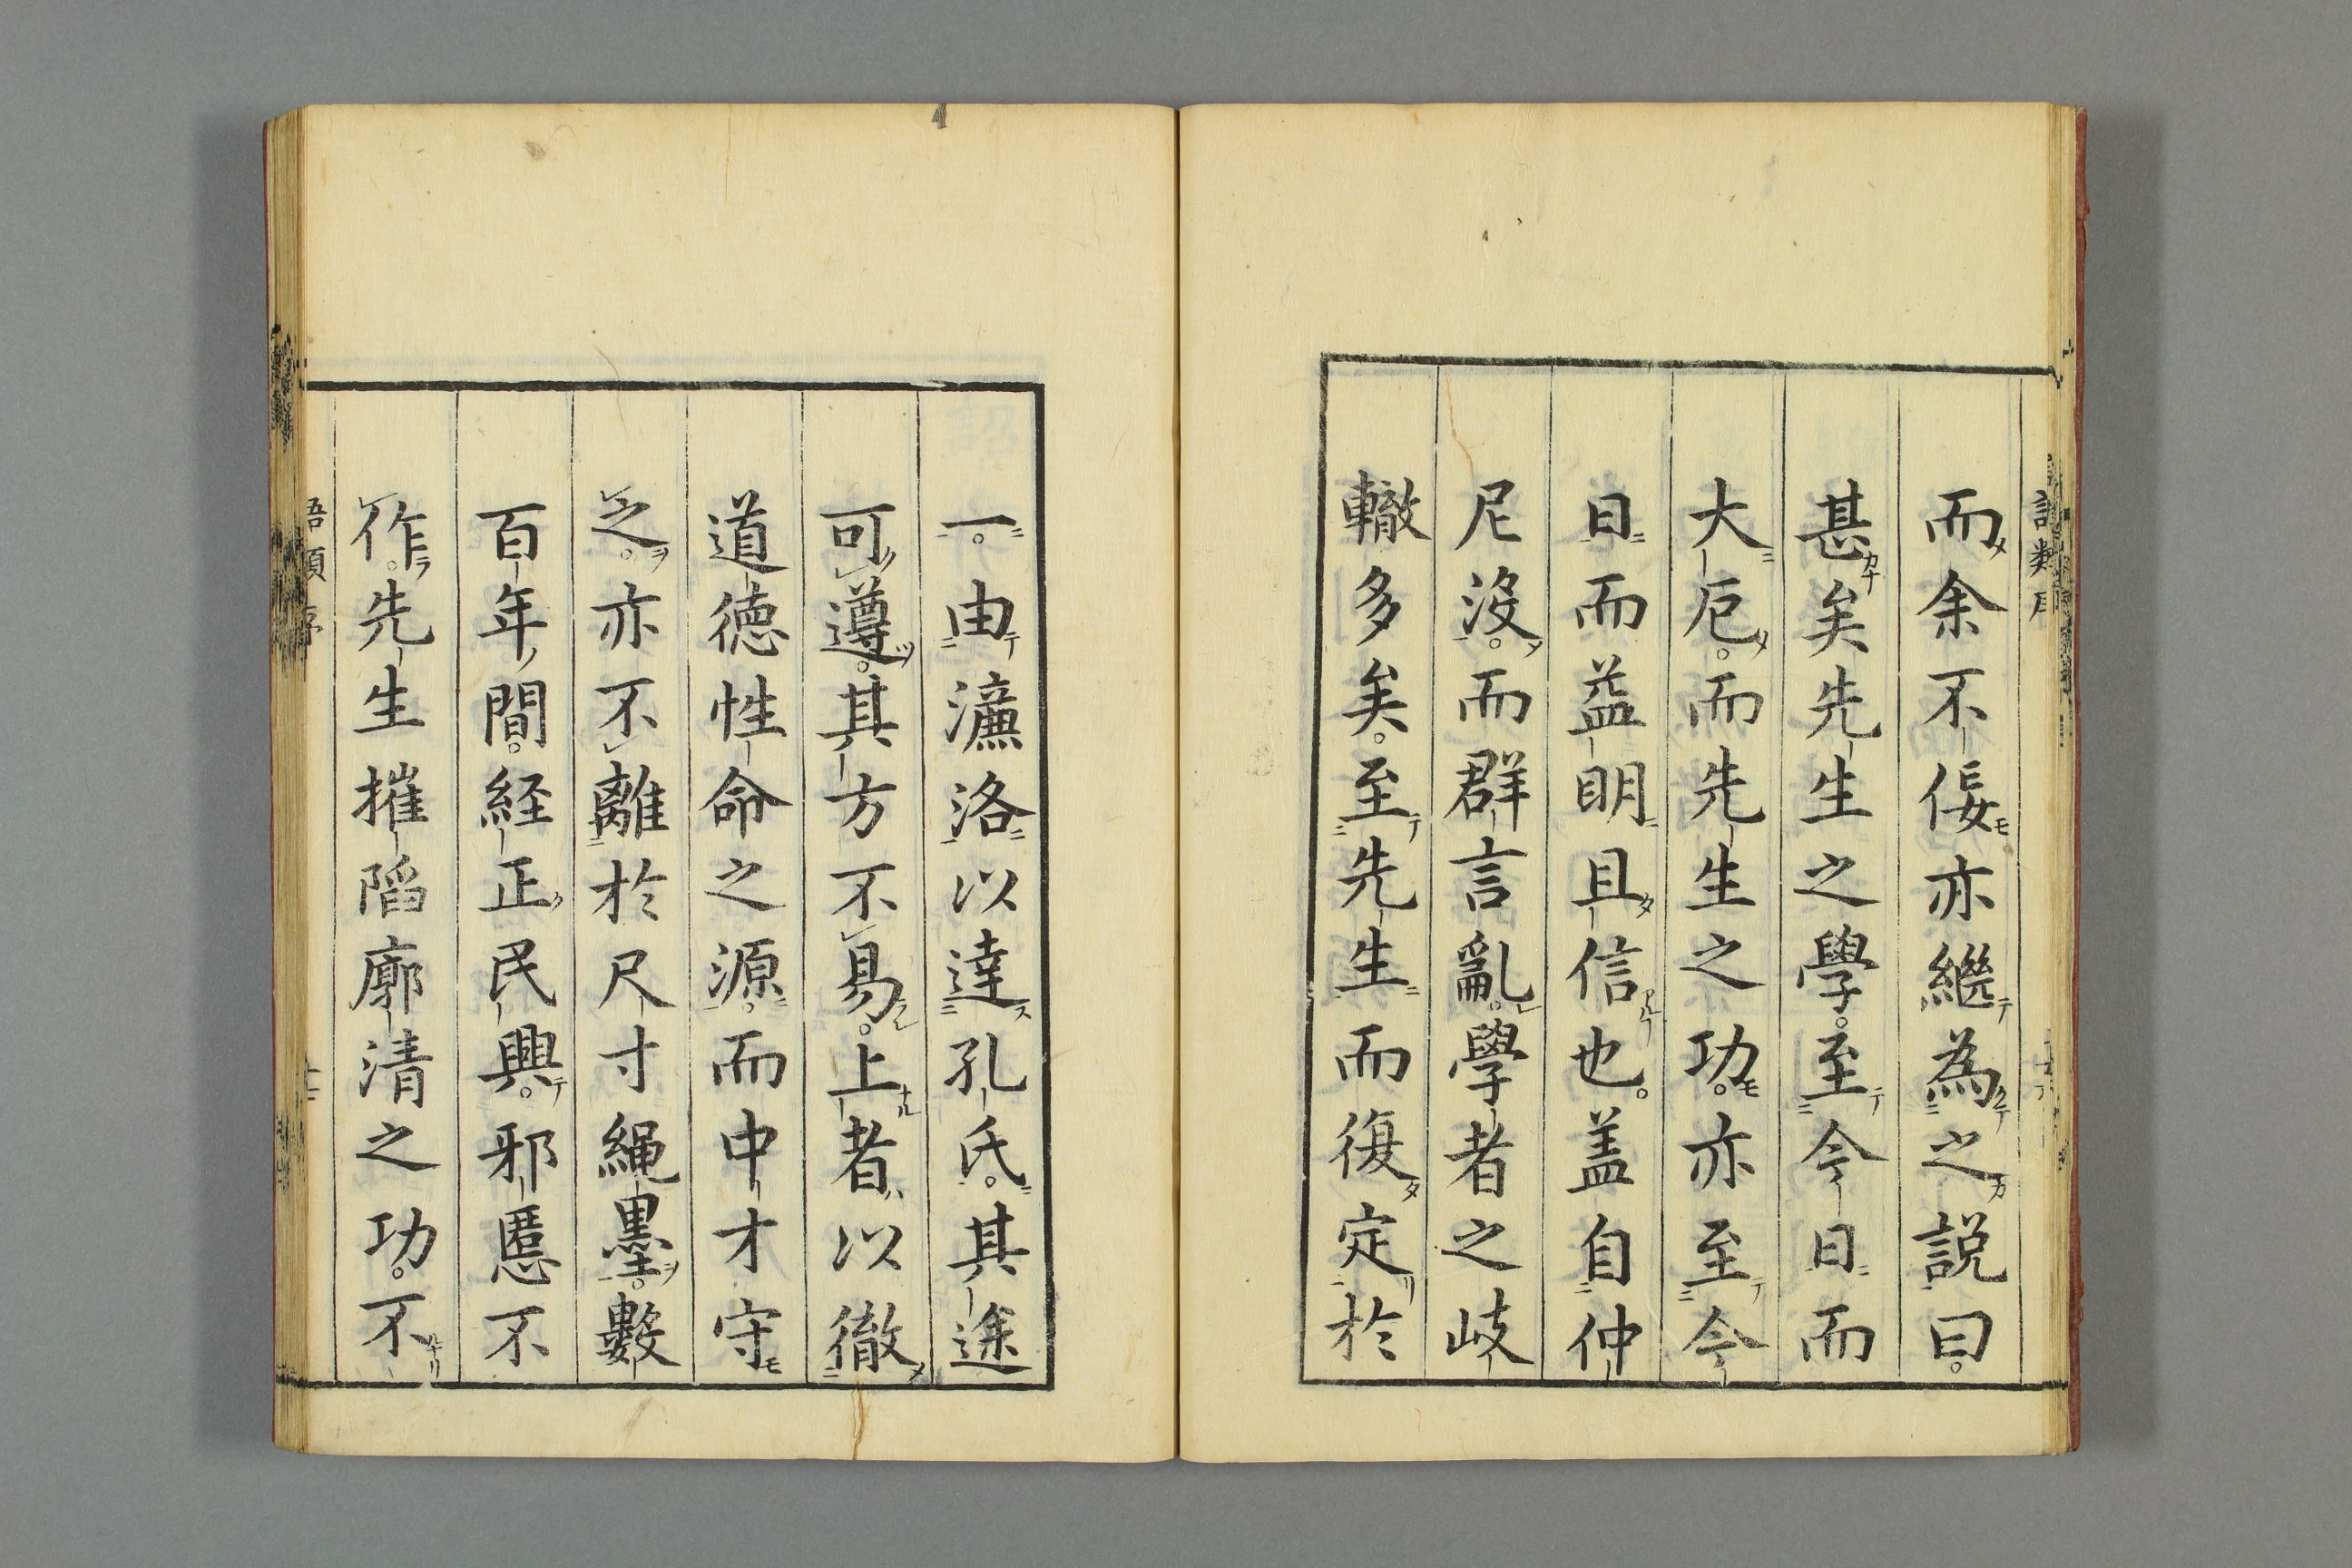 而余不佞亦繼為之説曰。
甚矣先生之學。至今日而
大厄。而先生之功。亦至今
日而益明且信也。盖自仲
尼没。而群言亂。學者之岐
轍多矣。至先生而復定於
一。由濂洛以達孔氏。其途
可遵。其方不易。上者以徹
道徳性命之源。而中才守
之。亦不離於尺寸繩墨。數
百年間。経正民興。邪慝不
作。先生摧陷廓清之功。不
語類序